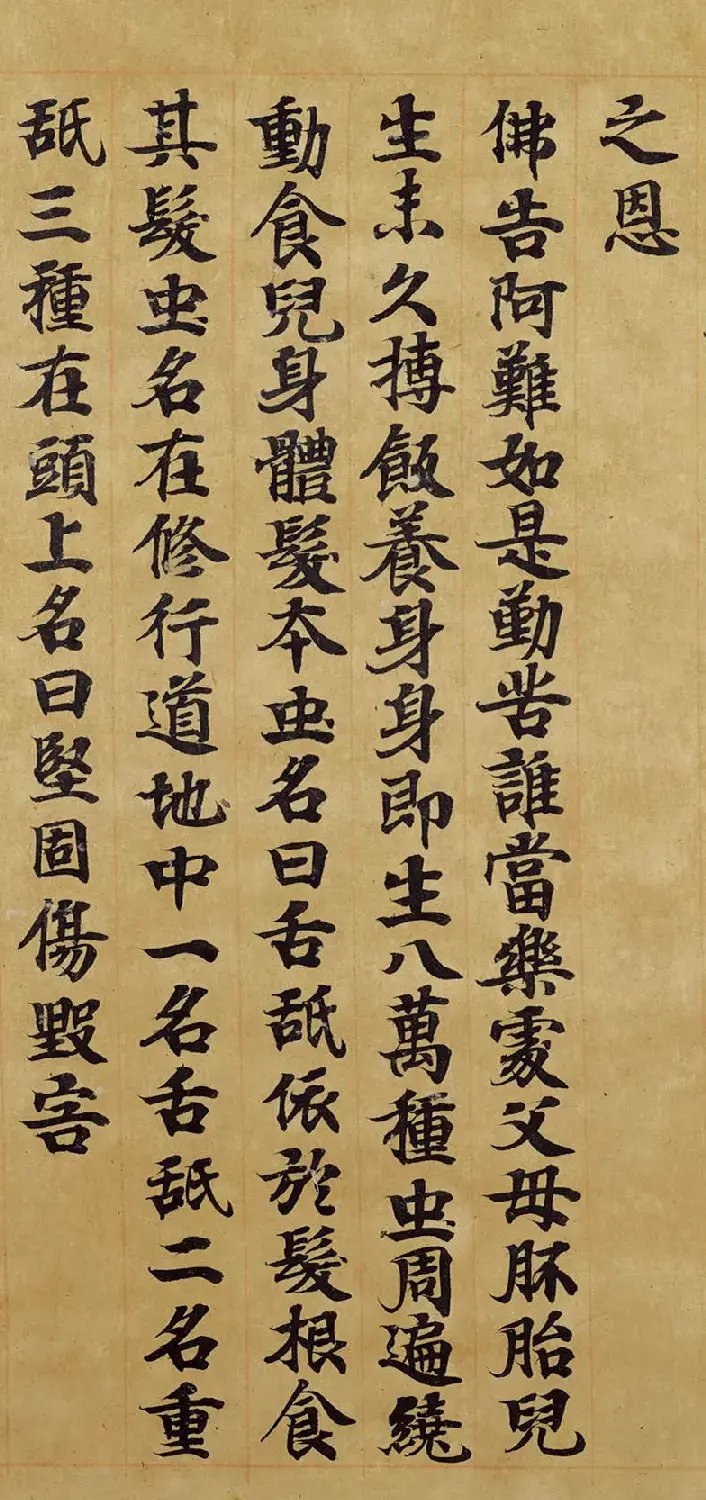 之恩
佛告阿難如是勤苦誰當樂處父母胚胎兒
生未久搏飯養身身即生八萬種虫周遍繞
動食兒身體髮本虫名曰舌舐依於髮根食
其髮虫名在修行道地中一名舌舐二名重
舐三種在頭上名曰堅固傷毀害